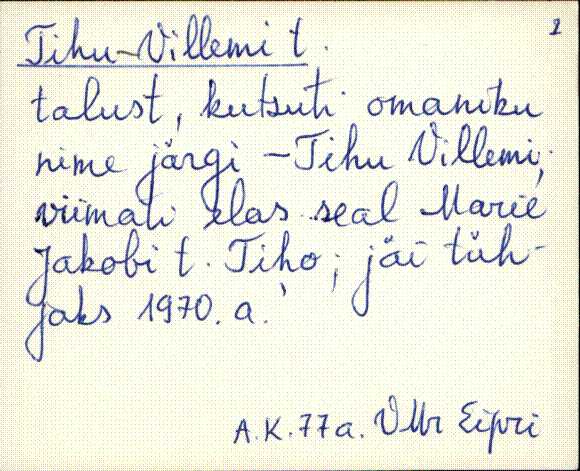 2
Tihu-Villemi t.
talust, kutsuti omaniku
nime järgi - Tihu Villemi;
viimati elas seal Marie
Jakobi t. Tiho; jäi tüh-
jaks 1970. a.
A.K. 77a. Eipri